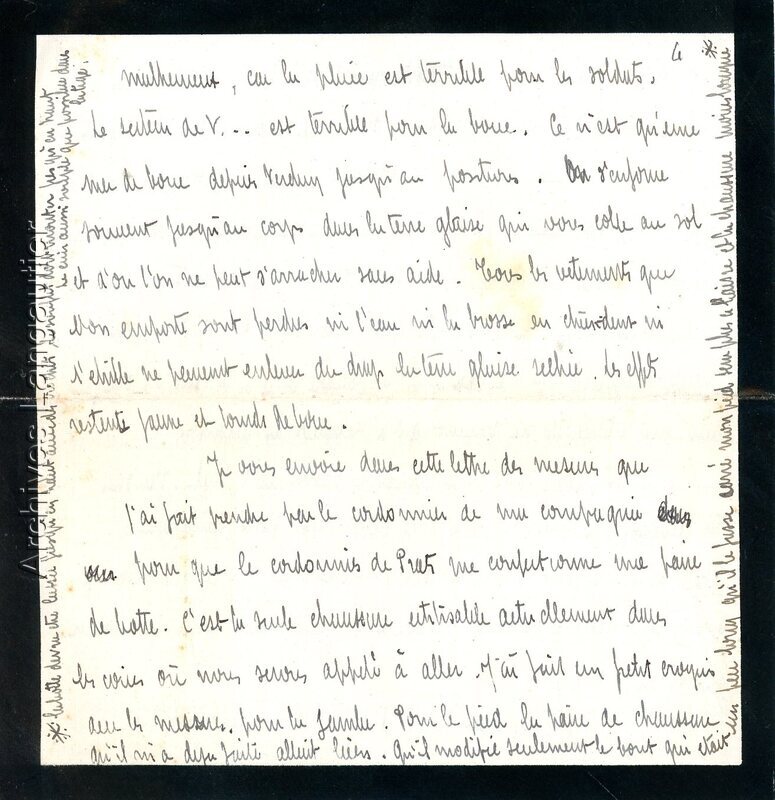 4 *
, car la pluie est terrible pour les soldats.
Le secteur de V... est terrible pour la boue. Ce n'est qu'une
mer de boue depuis Verdun jusqu'au positures. On s'enfonce
souvent jusqu'au corps dans la terre glaise qui vous colle au sol
et d'ou l'on ne peut s'arracher sans aide. Tous les vetements que
l'on emporte sont perdus ni l'eau ni la brosse en chiendent ni
l'etrille ne peuvent enlever du drap la terre glaise sechée. Les effets
restent jaune et lourds de boue.
Je vous envoie dans cette lettre des mesures que
j'ai fait prendre par le cordonnier de ma compagnie
pour que le cordonnier de Prats me confectionne une paire
de botte. C'est la seule chaussure utilisable actuellement dans
les coins où nous serons appelé à aller. J'ai fait un petit croquis
avec les mesures. pour la jambe. Pour le pied la paire de chaussure
qu'il m'a deja faite allait bien. Qu'il modifie seulement le bout qui etait
un peu qu'il le fasse carré mon pied sera plus à l'aise et la chaussure moins longue
* la botte devra etre lacée jusqu'en haut
le cuir aussi souple que possible dans la tige.
Archives Lanautier